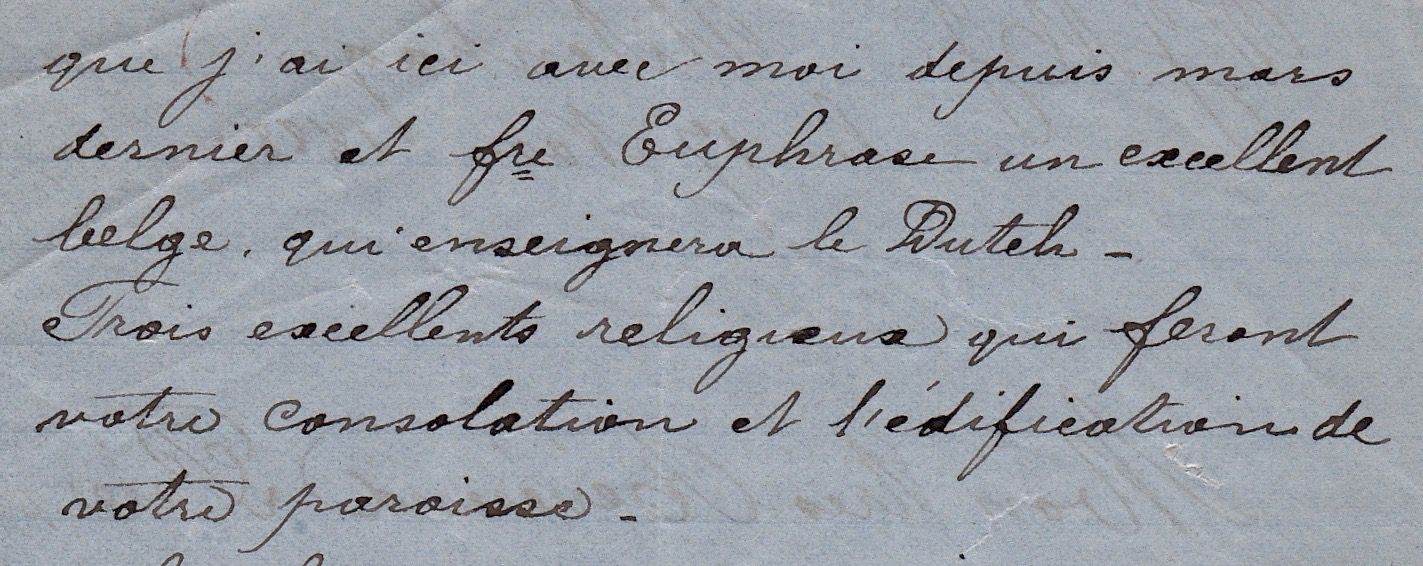 que j'ai ici avec moi depuis mars
dernier et fre Euphrase un excellent
belge. qui enseignera le Dutch -
Trois excellents religieux qui feront
votre consolation et l'édification de
votre paroisse -